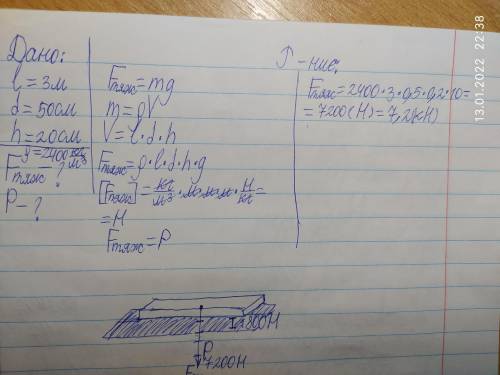 Дано:
l = 3м
d = 50см
h = 20см
ρ = 2400 кг/м³
Fтяж - ?
P - ?
Fтяж = mg
m = ρV
V = l·d·h
Fтяж = ρ·l·d·h·g
[Fтяж] = кг/м³ · м·м·м · Н/кг =
= Н
Fтяж = P
-ние:
Fтяж = 2400·3·0,5·0,2·10 =
= 7200(Н) = 7,2(кН)
1800Н
P
7200Н
F
13.01.2022 22:38